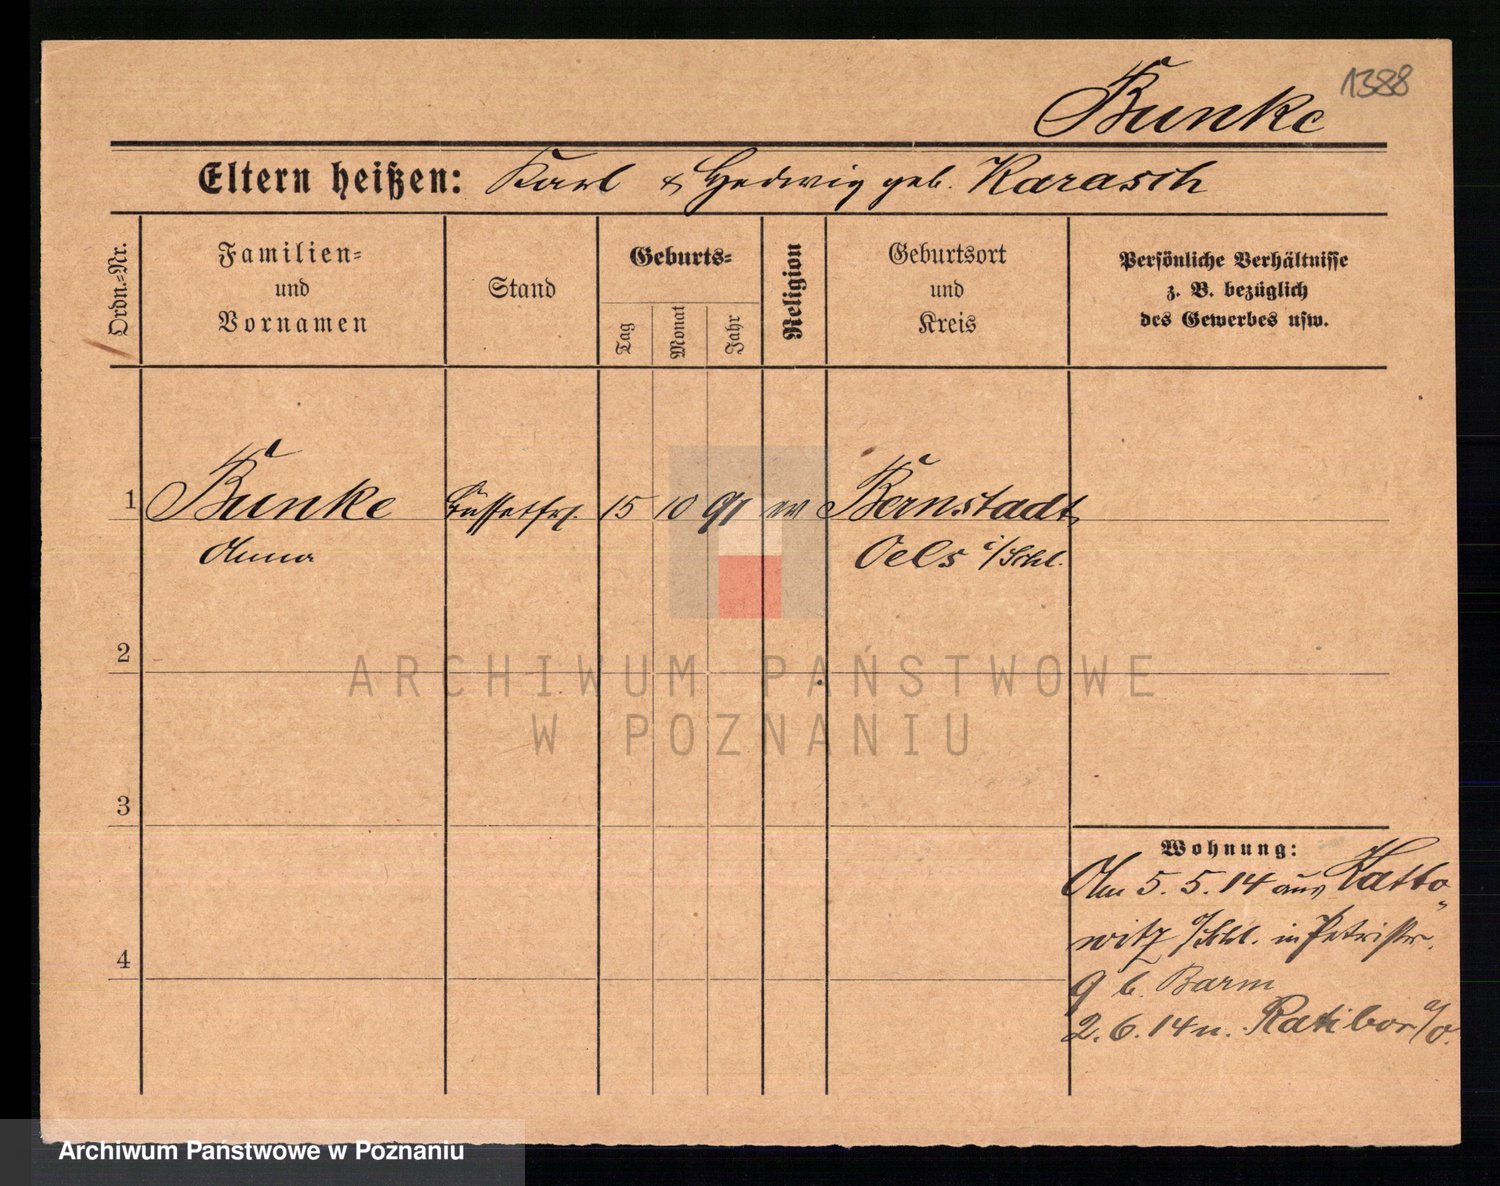 1388
Bunke
Eltern heißen: Karl & Hedwig geb. Karasch
Ordn.-Nr.
Familien-
und
Vornamen
Stand
Geburts-
Tag
Monat
Jahr
Religion
Geburtsort
und
Kreis
Persönliche Verhältnisse
z. B. bezüglich
des Gewerbes usw.
1 Bunke Büffetfrl. 15 10 91 ev Bernstadt
Anna Oels i/Schl.
2
3
4
Wohnung:
Am 5. 5. 14 aus Katto-
witz /Schl. in Petristr.
9 b. Barm
2. 6. 14 n. Ratibor a/O.
ARCHIWUM PAŃSTWOWE
W POZNANIU
Archiwum Państwowe w Poznaniu